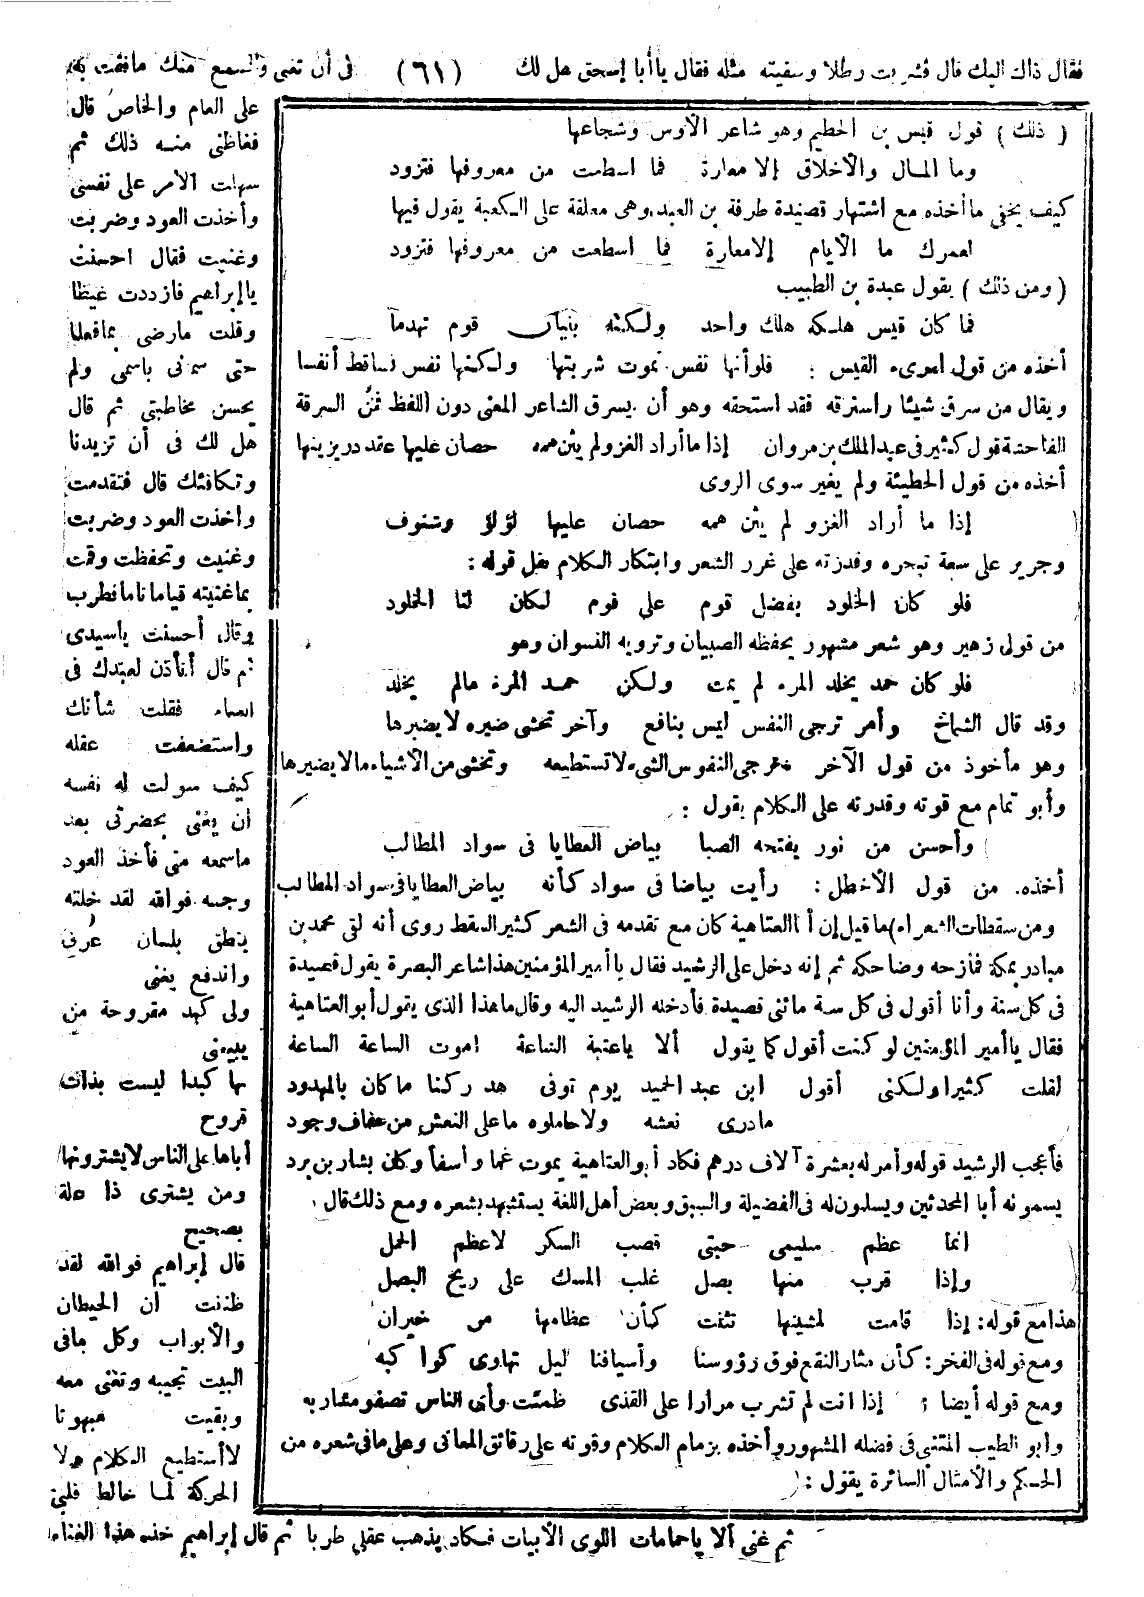 فقال ذاك اليك قال فشربت رطلا وسقيته مثله فقال يا أبا إسحق هل لك (٦١) فى أن تغنى ونسمع منك مافقت به
على العام والخاص قال
فغاظنى منه ذلك ثم
سهلت الأمر على نفسى
وأخذت العود وضربت
وغنيت فقال احسنت
يا إبراهيم فازددت غيظا
وقلت مارضى بمافعلنا
حتى سمنى باسمى ولم
يحسن مخاطبتى ثم قال
هل لك فى أن تزيدنا
وتكافئك قال فتقدمت
وأخذت العود وضربت
وغنيت وتحفظت وقمت
بماغنيته قياما تاما فطرب
وقال أحسنت ياسيدى
ثم قال أتأذن لعبدك فى
الغناء فقلت شأنك
واستضعفت عقله
كيف سولت له نفسه
أن يغنى بحضرتى بعد
ماسمعه منى فأخذ العود
وجسه فوالله لقد خلته
ينطق بلسان عربى
واندفع يغنى
ولى كبد مقروحة من
يبيعنى
بها كبدا ليست بذات
قروح
أباها على الناس لايشترونها
ومن يشترى ذا علة
بصحيح
قال إبراهيم فوالله لقد
ظننت ان الحيطان
والأبواب وكل مافى
البيت تجيبه وتغنى معه
وبقيت مبهوتا
لاأستطيع الكلام ولا
الحركة لما خالط قلبى
( ذلك ) قول قيس بن الخطيم وهو شاعر الأوس وشجاعها
وما المال والأخلاق إلا معارة فما اسطعت من معروفها فتزود
كيف يخفى ماأخذه مع اشتهار قصيدة طرفة بن العبد وهى معلقة على الكعبة يقول فيها
لعمرك ما الأيام إلا معارة فما اسطعت من معروفها فتزود
( ومن ذلك ) يقول عبدة بن الطبيب
فما كان قيس هلكه هلك واحد ولكنه بنيان قوم تهدما
أخذه من قول امرىء القيس : فلو أنها نفس تموت شربتها ولكنها نفس تساقط أنفسا
ويقال من سرق شيئا واسترقه فقد استحقه وهو أن يسرق الشاعر المعنى دون اللفظ فمن السرقة
الفاحشة قول كثير فى عبد الملك بن مروان إذا ماأراد الغزو لم يثن همه حصان عليها عقد در يزينها
أخذه من قول الحطيئة ولم يغير سوى الروى
إذا ما أراد الغزو لم يثن همه حصان عليها لؤلؤ وشنوف
وجرير على سعة تبحره وقدرته على غرر الشعر وابتكار الكلام نقل قوله :
فلو كان الخلود بفضل قوم على قوم لكان لنا الخلود
من قول زهير وهو شعر مشهور يحفظه الصبيان وترويه النسوان وهو
فلو كان حمد يخلد المرء لم يمت ولكن حمد المرء مالم يخلد
وقد قال الشماخ وأمر ترجى النفس ليس بنافع وآخر تخشى ضيره لا يضيرها
وهو مأخوذ من قول الآخر ترجى النفوس الشىء لاتستطيعه وتخشى من الأشياء مالايضيرها
وأبو تمام مع قوته وقدرته على الكلام يقول :
وأحسن من نور يفتحه الصبا بياض العطايا فى سواد المطالب
أخذه من قول الأخطل : رأيت بياضا فى سواد كأنه بياض العطايا فى سواد المطالب
ومن سقطات الشعراء) ماقيل إن أبا العتاهية كان مع تقدمه فى الشعر كثير السقط روى أنه لقى محمد بن
مبادر بمكة فمازحه وضاحكه ثم إنه دخل على الرشيد فقال ياأمير المؤمنين هذا شاعر البصرة يقول قصيدة
فى كل سنة وأنا أقول فى كل سنة مائتى قصيدة فأدخله الرشيد اليه وقال ماهذا الذى يقول أبو العتاهية
فقال ياأمير المؤمنين لو كنت أقول كما يقول ألا ياعتبة الساعة اموت الساعة الساعة
لقلت كثيرا ولكنى أقول ابن عبد الحميد يوم توفى هد ركنا ماكان بالمهدود
مادرى نعشه ولاحاملوه ماعلى النعش من عفاف وجود
فأعجب الرشيد قوله وأمر له بعشرة آلاف درهم فكاد أبو العتاهية يموت غما وأسفا وكان بشار بن برد
يسمونه أبا المحدثين ويسلمون له فى الفضيلة والسبق وبعض أهل اللغة يستشهد بشعره ومع ذلك قال
انما عظم سليمى حبتى قصب السكر لاعظم الجمل
وإذا قرب منها بصل غلب المسك على ريح البصل
هذا مع قوله : إذا قامت لمشيتها تثنت كأن عظامها من خيزران
ومع قوله فى الفخر : كأن مثار النقع فوق رؤوسنا وأسيافنا ليل تهاوى كواكبه
ومع قوله أيضا : إذا انت لم تشرب مرارا على القذى ظمئت وأى الناس تصفو مشاربه
وأبو الطيب المتنبى فى فضله المشهور وأخذه بزمام الكلام وقوته على رقائق المعانى وعلى مافى شعره من
الحكم والأمثال السائرة يقول :
ثم غنى ألا ياحمامات اللوى الأبيات فكاد يذهب عقلى طربا ثم قال إبراهيم خذ هذا الغناء